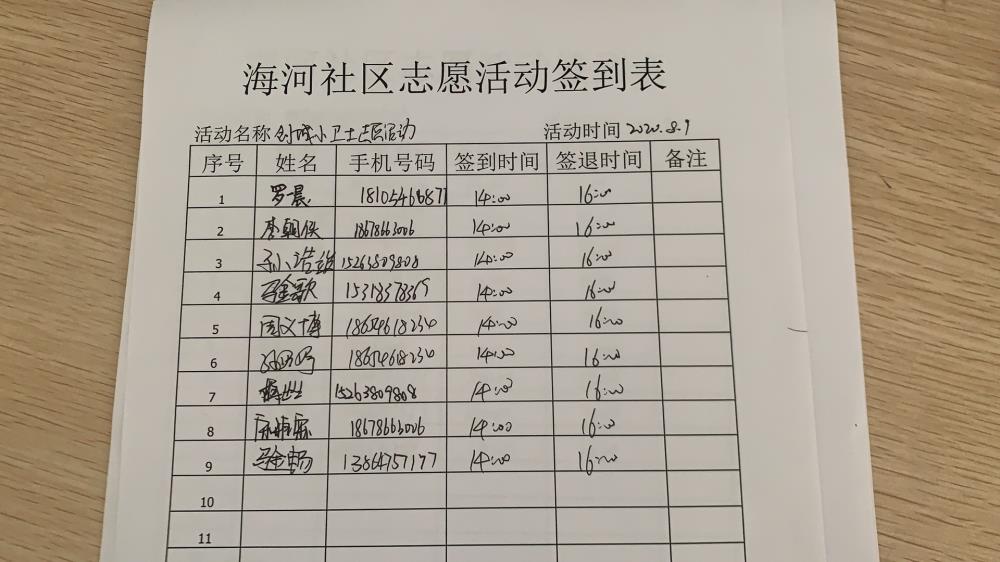 海河社区志愿活动签到表
活动名称 创城小卫士志愿活动 活动时间 2020.8.9
序号 姓名 手机号码 签到时间 签退时间 备注
1 罗晨 18105466877 14:00 16:00
2 14:00 16:00
3 孙浩 15263809808 14:00 16:00
4 马金歌 15318378369 14:00 16:00
5 周文博 18654618234 14:00 16:00
6 18654618234 14:00 16:00
7 15263809808 14:00 16:00
8 18678663006 14:00 16:00
9 马金畅 13864757177 14:00 16:00
10
11